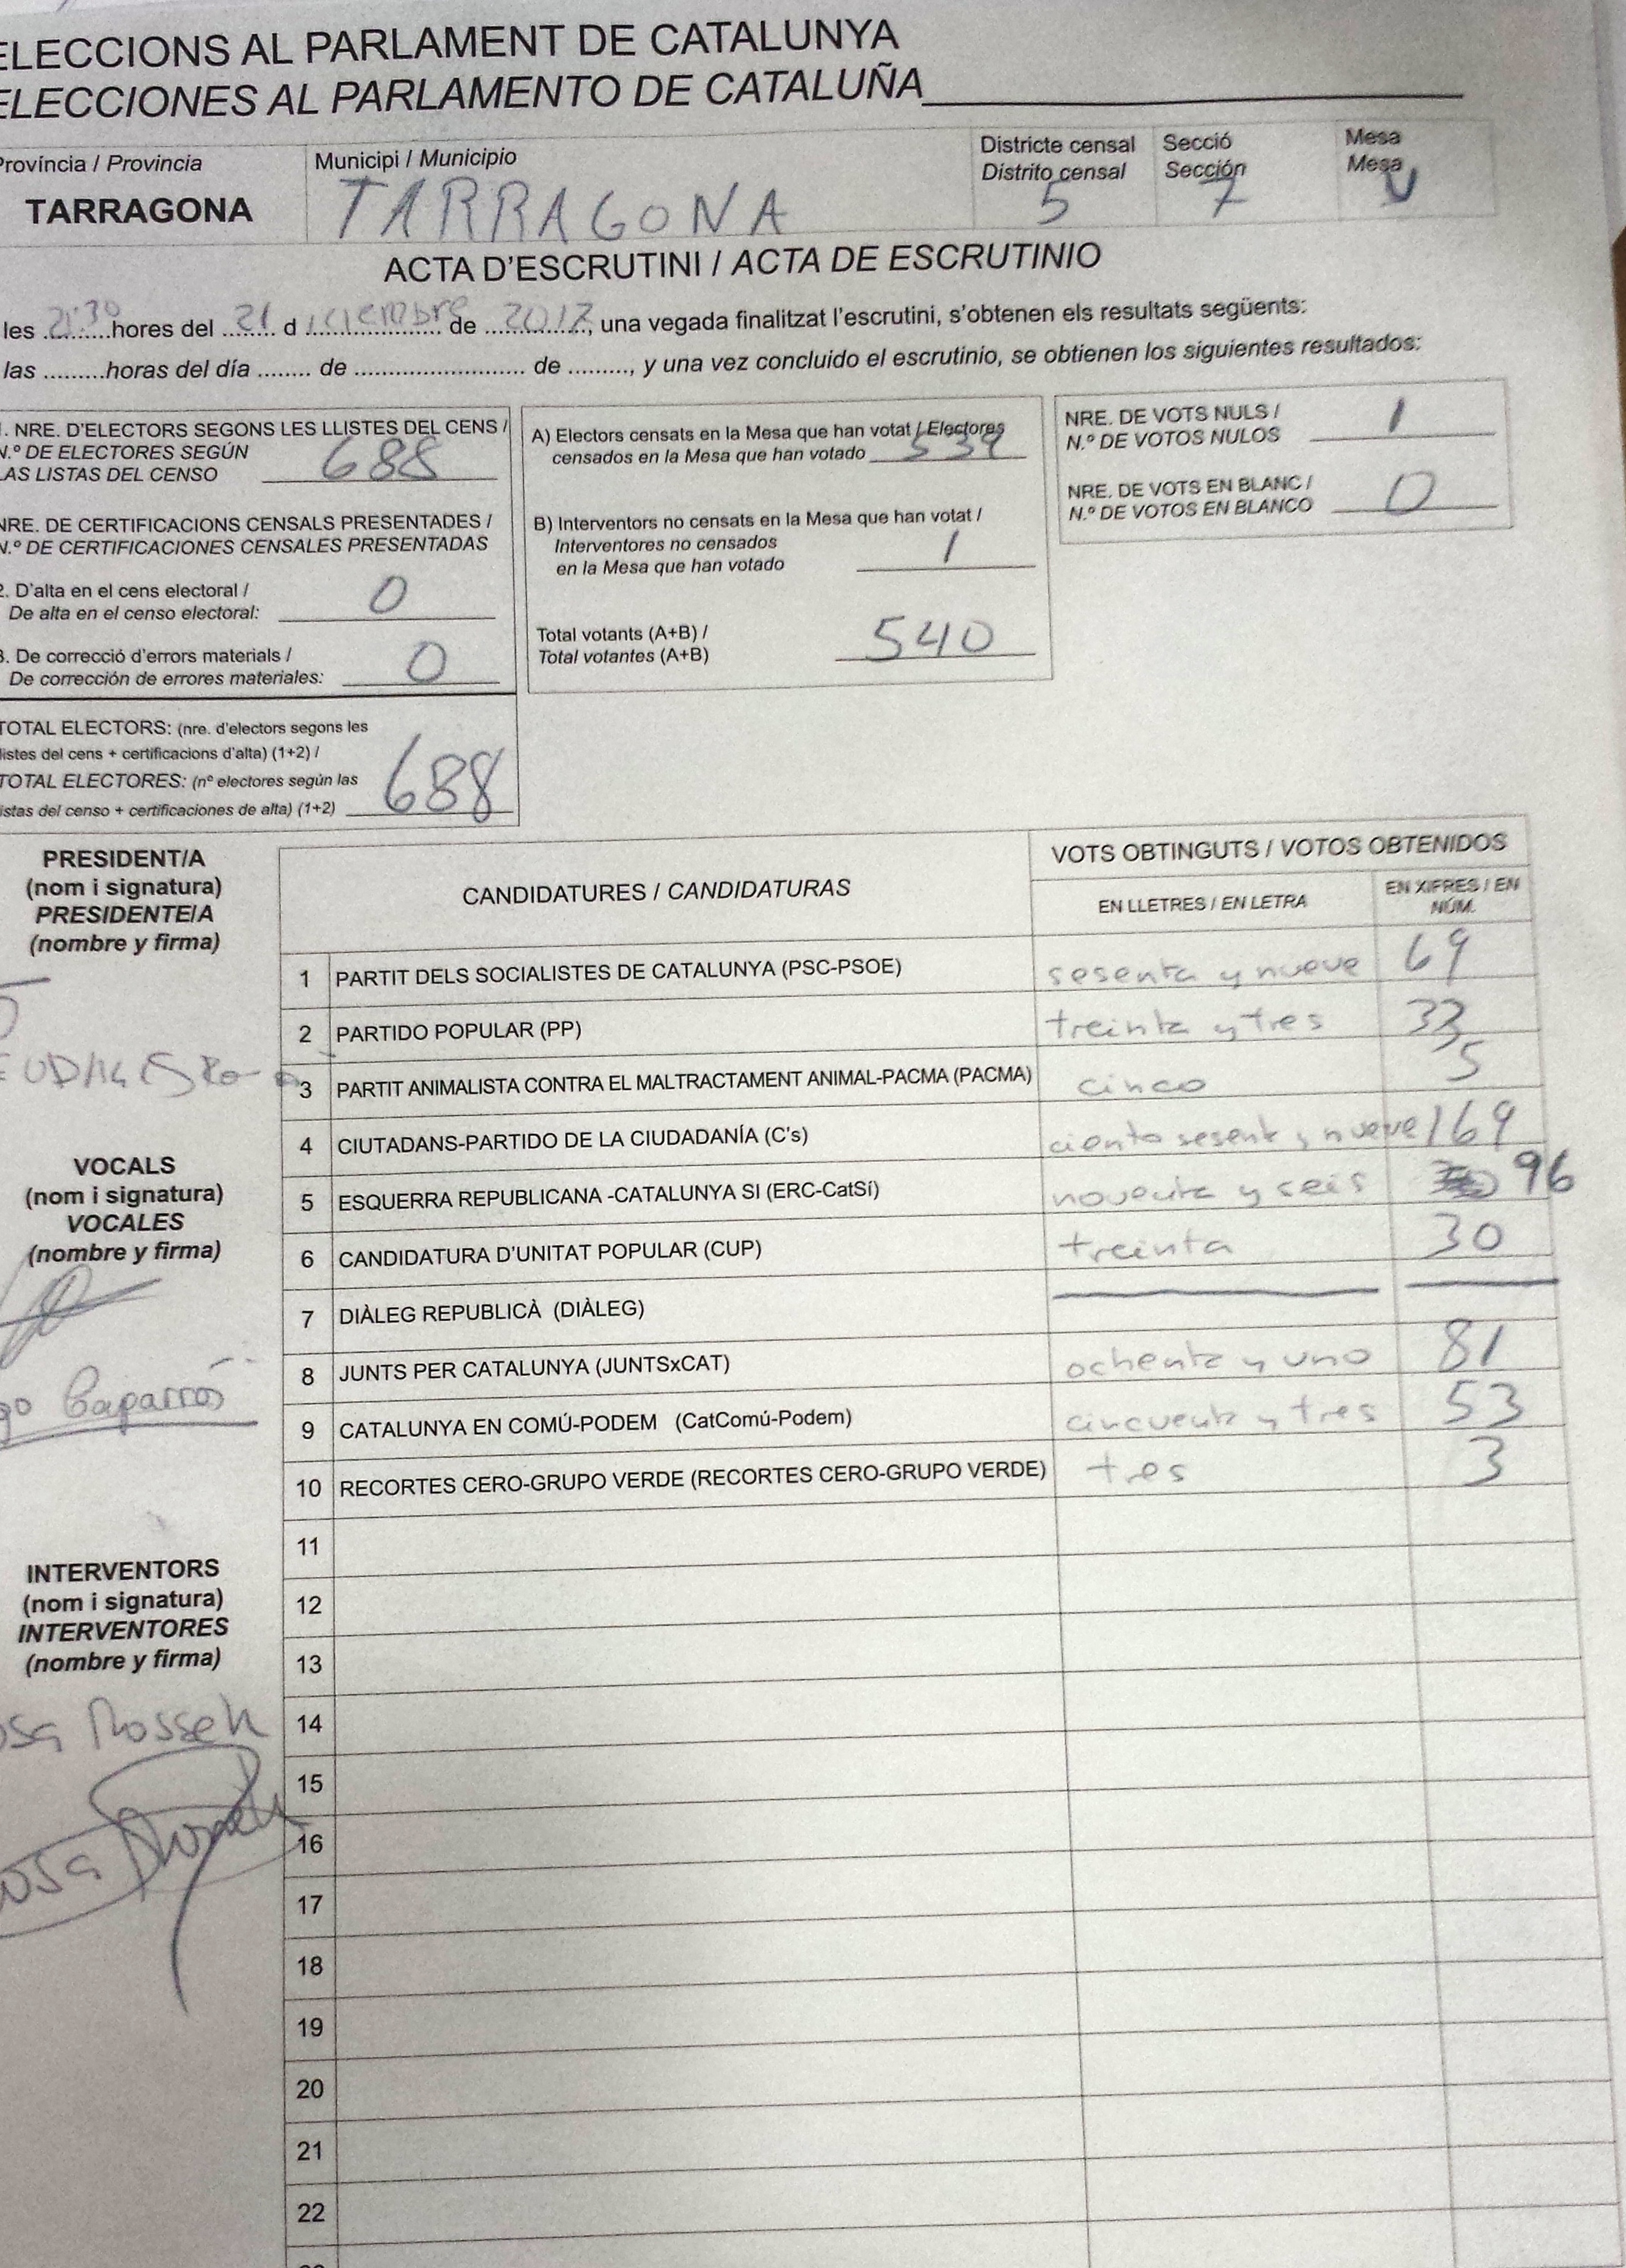 ELECCIONS AL PARLAMENT DE CATALUNYA
ELECCIONES AL PARLAMENTO DE CATALUÑA
Província / Provincia
TARRAGONA
Municipi / Municipio
TARRAGONA
Districte censal
Distrito censal
5
Secció
Sección
7
Mesa
Mesa
U
ACTA D'ESCRUTINI / ACTA DE ESCRUTINIO
les 21:30 hores del 21 d diciembre de 2017, una vegada finalitzat l'escrutini, s'obtenen els resultats següents:
las .........horas del día ........ de ......................... de ........., y una vez concluido el escrutinio, se obtienen los siguientes resultados:
1. NRE. D'ELECTORS SEGONS LES LLISTES DEL CENS /
N.º DE ELECTORES SEGÚN
LAS LISTAS DEL CENSO 688
NRE. DE CERTIFICACIONS CENSALS PRESENTADES /
N.º DE CERTIFICACIONES CENSALES PRESENTADAS
2. D'alta en el cens electoral /
De alta en el censo electoral: 0
3. De correcció d'errors materials /
De corrección de errores materiales: 0
TOTAL ELECTORS: (nre. d'electors segons les
llistes del cens + certificacions d'alta) (1+2) /
TOTAL ELECTORES: (nº electores según las
listas del censo + certificaciones de alta) (1+2) 688
A) Electors censats en la Mesa que han votat / Electores
censados en la Mesa que han votado 539
B) Interventors no censats en la Mesa que han votat /
Interventores no censados
en la Mesa que han votado 1
Total votants (A+B) /
Total votantes (A+B) 540
NRE. DE VOTS NULS /
N.º DE VOTOS NULOS 1
NRE. DE VOTS EN BLANC /
N.º DE VOTOS EN BLANCO 0
PRESIDENT/A
(nom i signatura)
PRESIDENTE/A
(nombre y firma)
VOCALS
(nom i signatura)
VOCALES
(nombre y firma)
Caparrós
INTERVENTORS
(nom i signatura)
INTERVENTORES
(nombre y firma)
CANDIDATURES / CANDIDATURAS
VOTS OBTINGUTS / VOTOS OBTENIDOS
EN LLETRES / EN LETRA
EN XIFRES / EN
NÚM.
1 PARTIT DELS SOCIALISTES DE CATALUNYA (PSC-PSOE) sesenta y nueve 69
2 PARTIDO POPULAR (PP) treinta y tres 33
3 PARTIT ANIMALISTA CONTRA EL MALTRACTAMENT ANIMAL-PACMA (PACMA) cinco 5
4 CIUTADANS-PARTIDO DE LA CIUDADANÍA (C's) ciento sesenta y nueve 169
5 ESQUERRA REPUBLICANA -CATALUNYA SI (ERC-CatSí) noventa y seis 96
6 CANDIDATURA D'UNITAT POPULAR (CUP) treinta 30
7 DIÀLEG REPUBLICÀ (DIÀLEG)
8 JUNTS PER CATALUNYA (JUNTSxCAT) ochenta y uno 81
9 CATALUNYA EN COMÚ-PODEM (CatComú-Podem) cincuenta y tres 53
10 RECORTES CERO-GRUPO VERDE (RECORTES CERO-GRUPO VERDE) tres 3
11
12
13
14
15
16
17
18
19
20
21
22